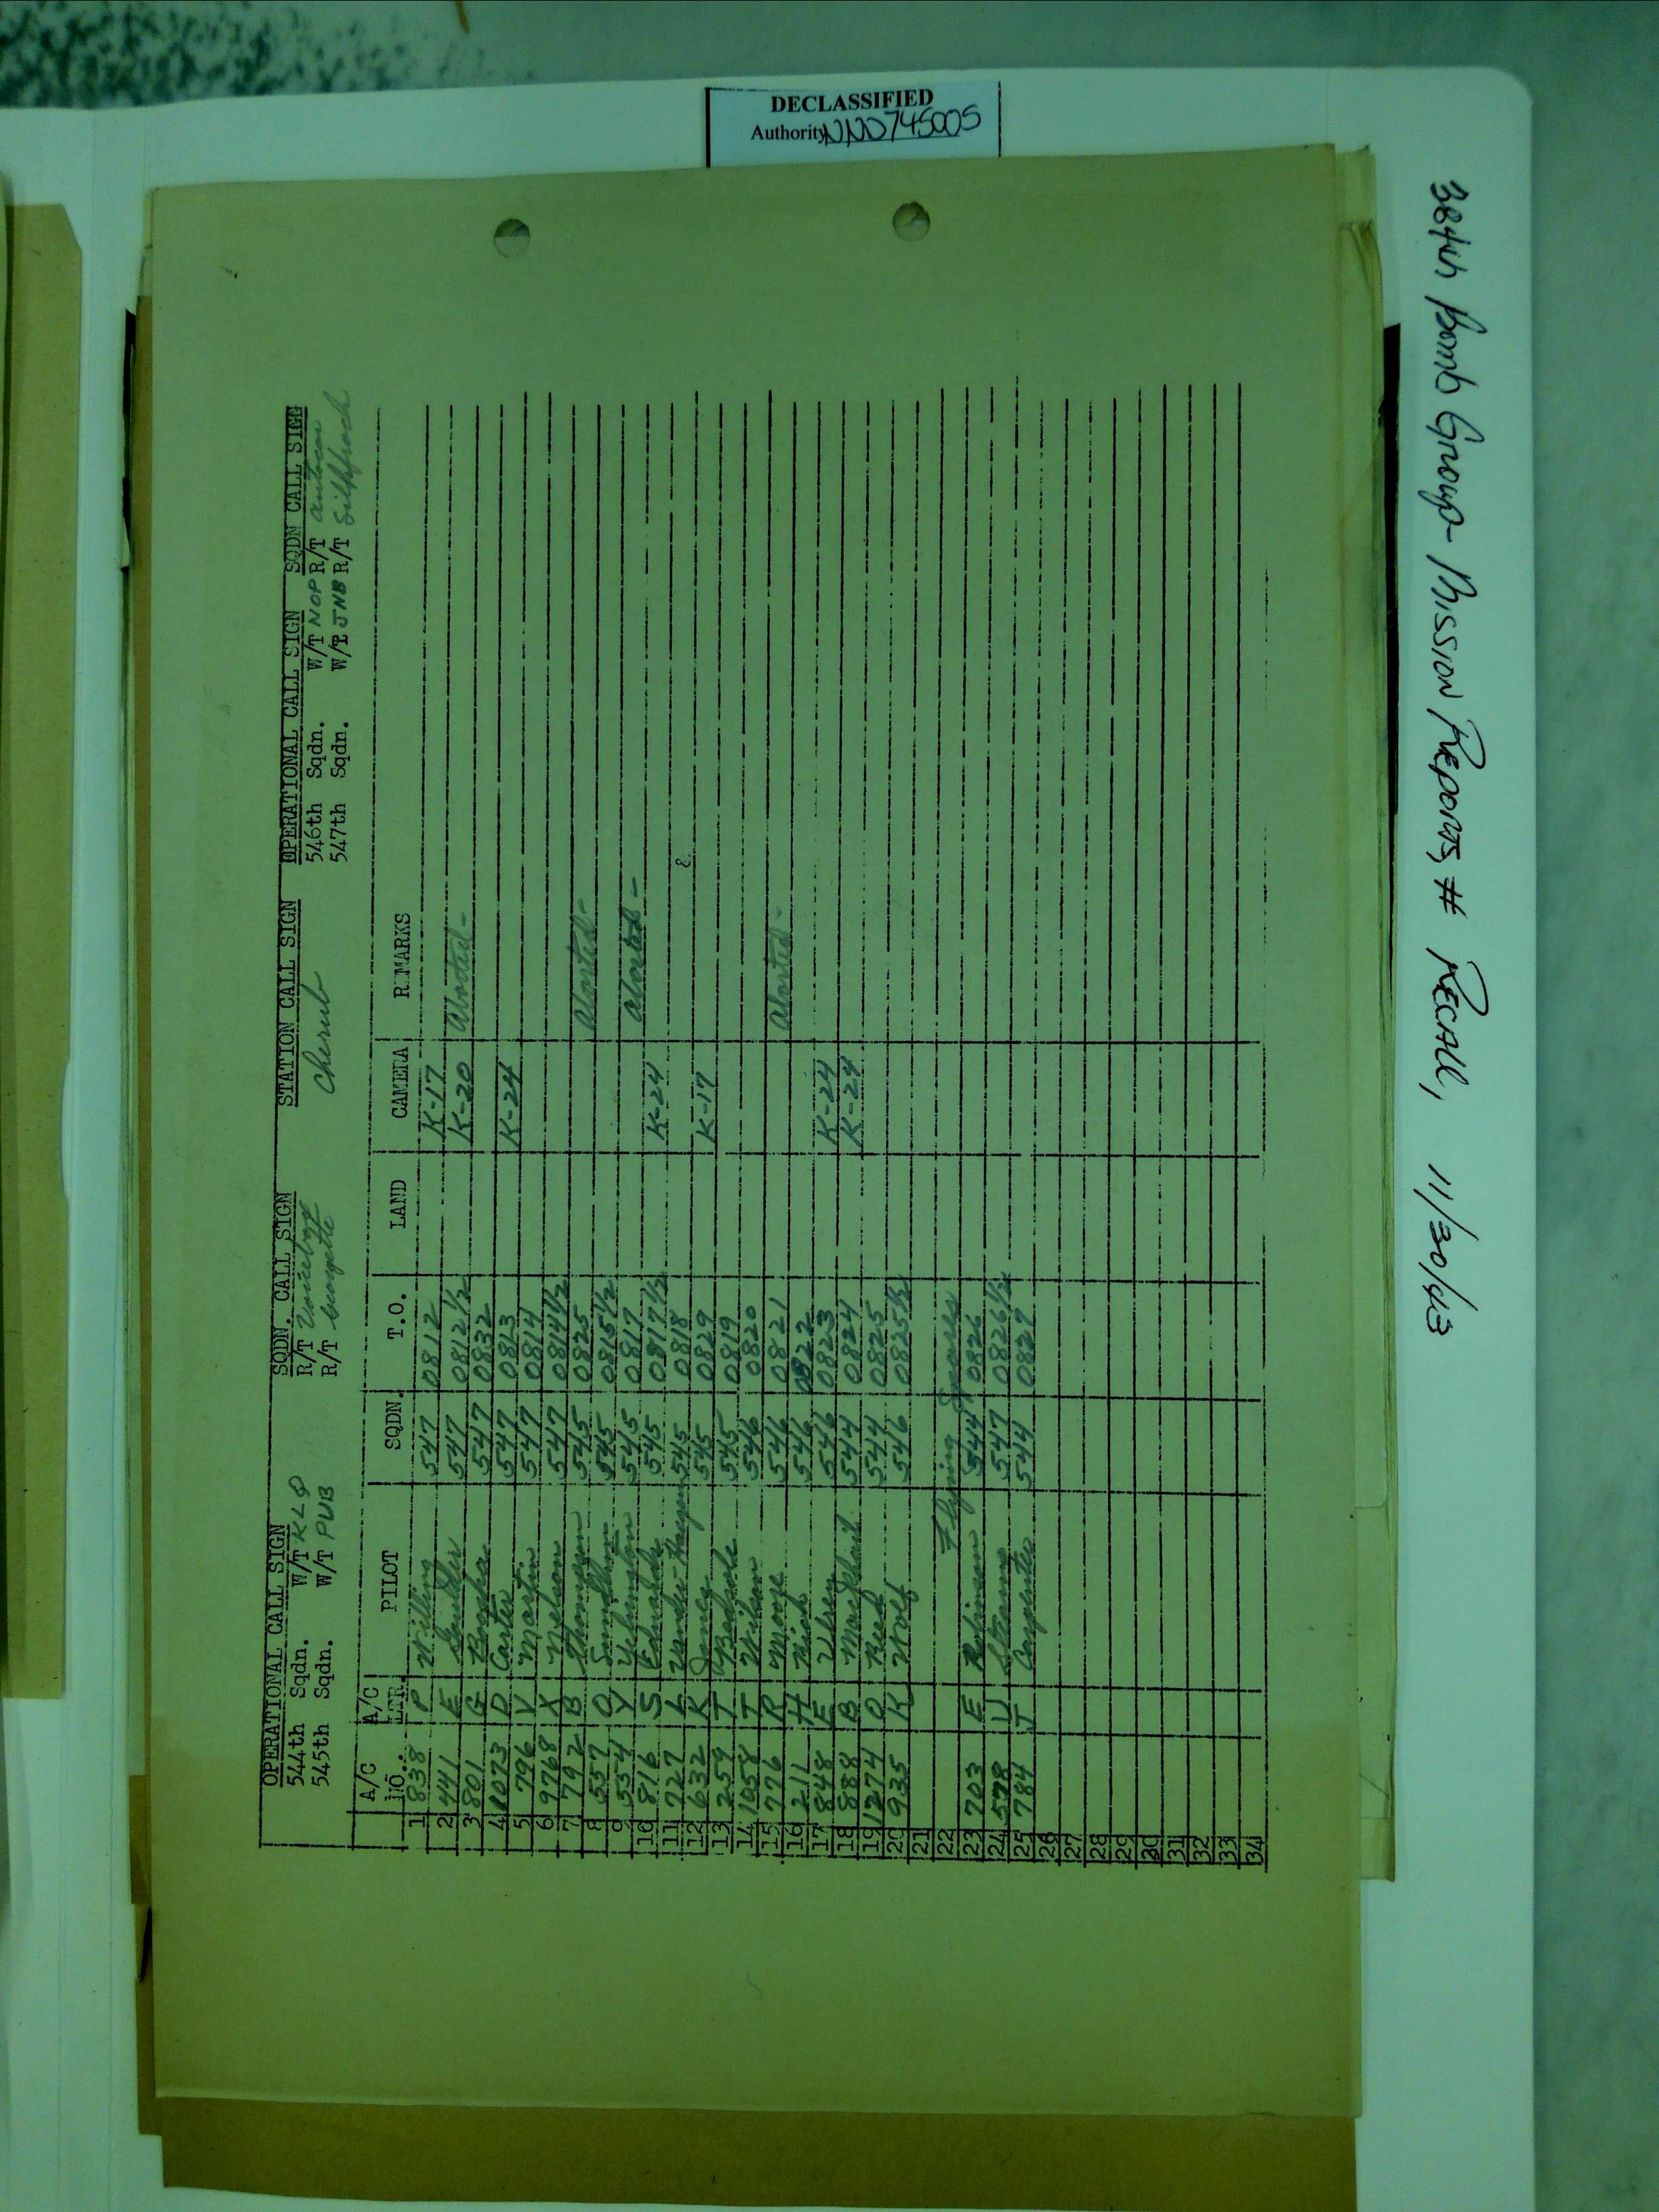 DECLASSIFIED
Authority NND745005
384th Bomb Group - Mission Reports, # Recall, 11/30/43
OPERATIONAL CALL SIGN SQDN. CALL SIGN STATION CALL SIGN OPERATIONAL CALL SIGN SQDN CALL SIGN
544th Sqdn. W/T KLQ R/T Cherub 546th Sqdn. W/T NOP R/T
545th Sqdn. W/T PUB R/T 547th Sqdn. W/T JNB R/T
A/C NO. A/C LTR. PILOT SQDN. T.O. LAND CAMERA REMARKS
1 838 P Willing 547 0812 K-17
2 441 E 547 0812 1/2 K-20 Aborted -
3 801 G 547 0832
4 1073 D Carter 547 0813 K-24
5 796 V Martin 547 0814
6 9768 X Nelson 547 0814 1/2
7 792 B Thompson 545 0825 Aborted -
8 557 O 545 0815 1/2
9 554 Y 545 0817 Aborted -
10 816 S Edwards 545 0817 1/2 K-24
11 727 L 545 0818
12 632 K Jones 545 0829 K-17
13 259 T 545 0819
14 1058 T Wilson 546 0820
15 776 R 546 0821 Aborted -
16 211 H 546 0822
17 848 E Ulrey 546 0823 K-24
18 888 B MacPhail 544 0824 K-24
19 1274 O Reed 544 0825
20 935 K Wolf 546 0825 1/2
21
22 Flying Spares
23 703 E Robinson 544 0826
24 578 U Stearns 547 0826 1/2
25 784 J Carpenter 544 0827
26
27
28
29
30
31
32
33
34